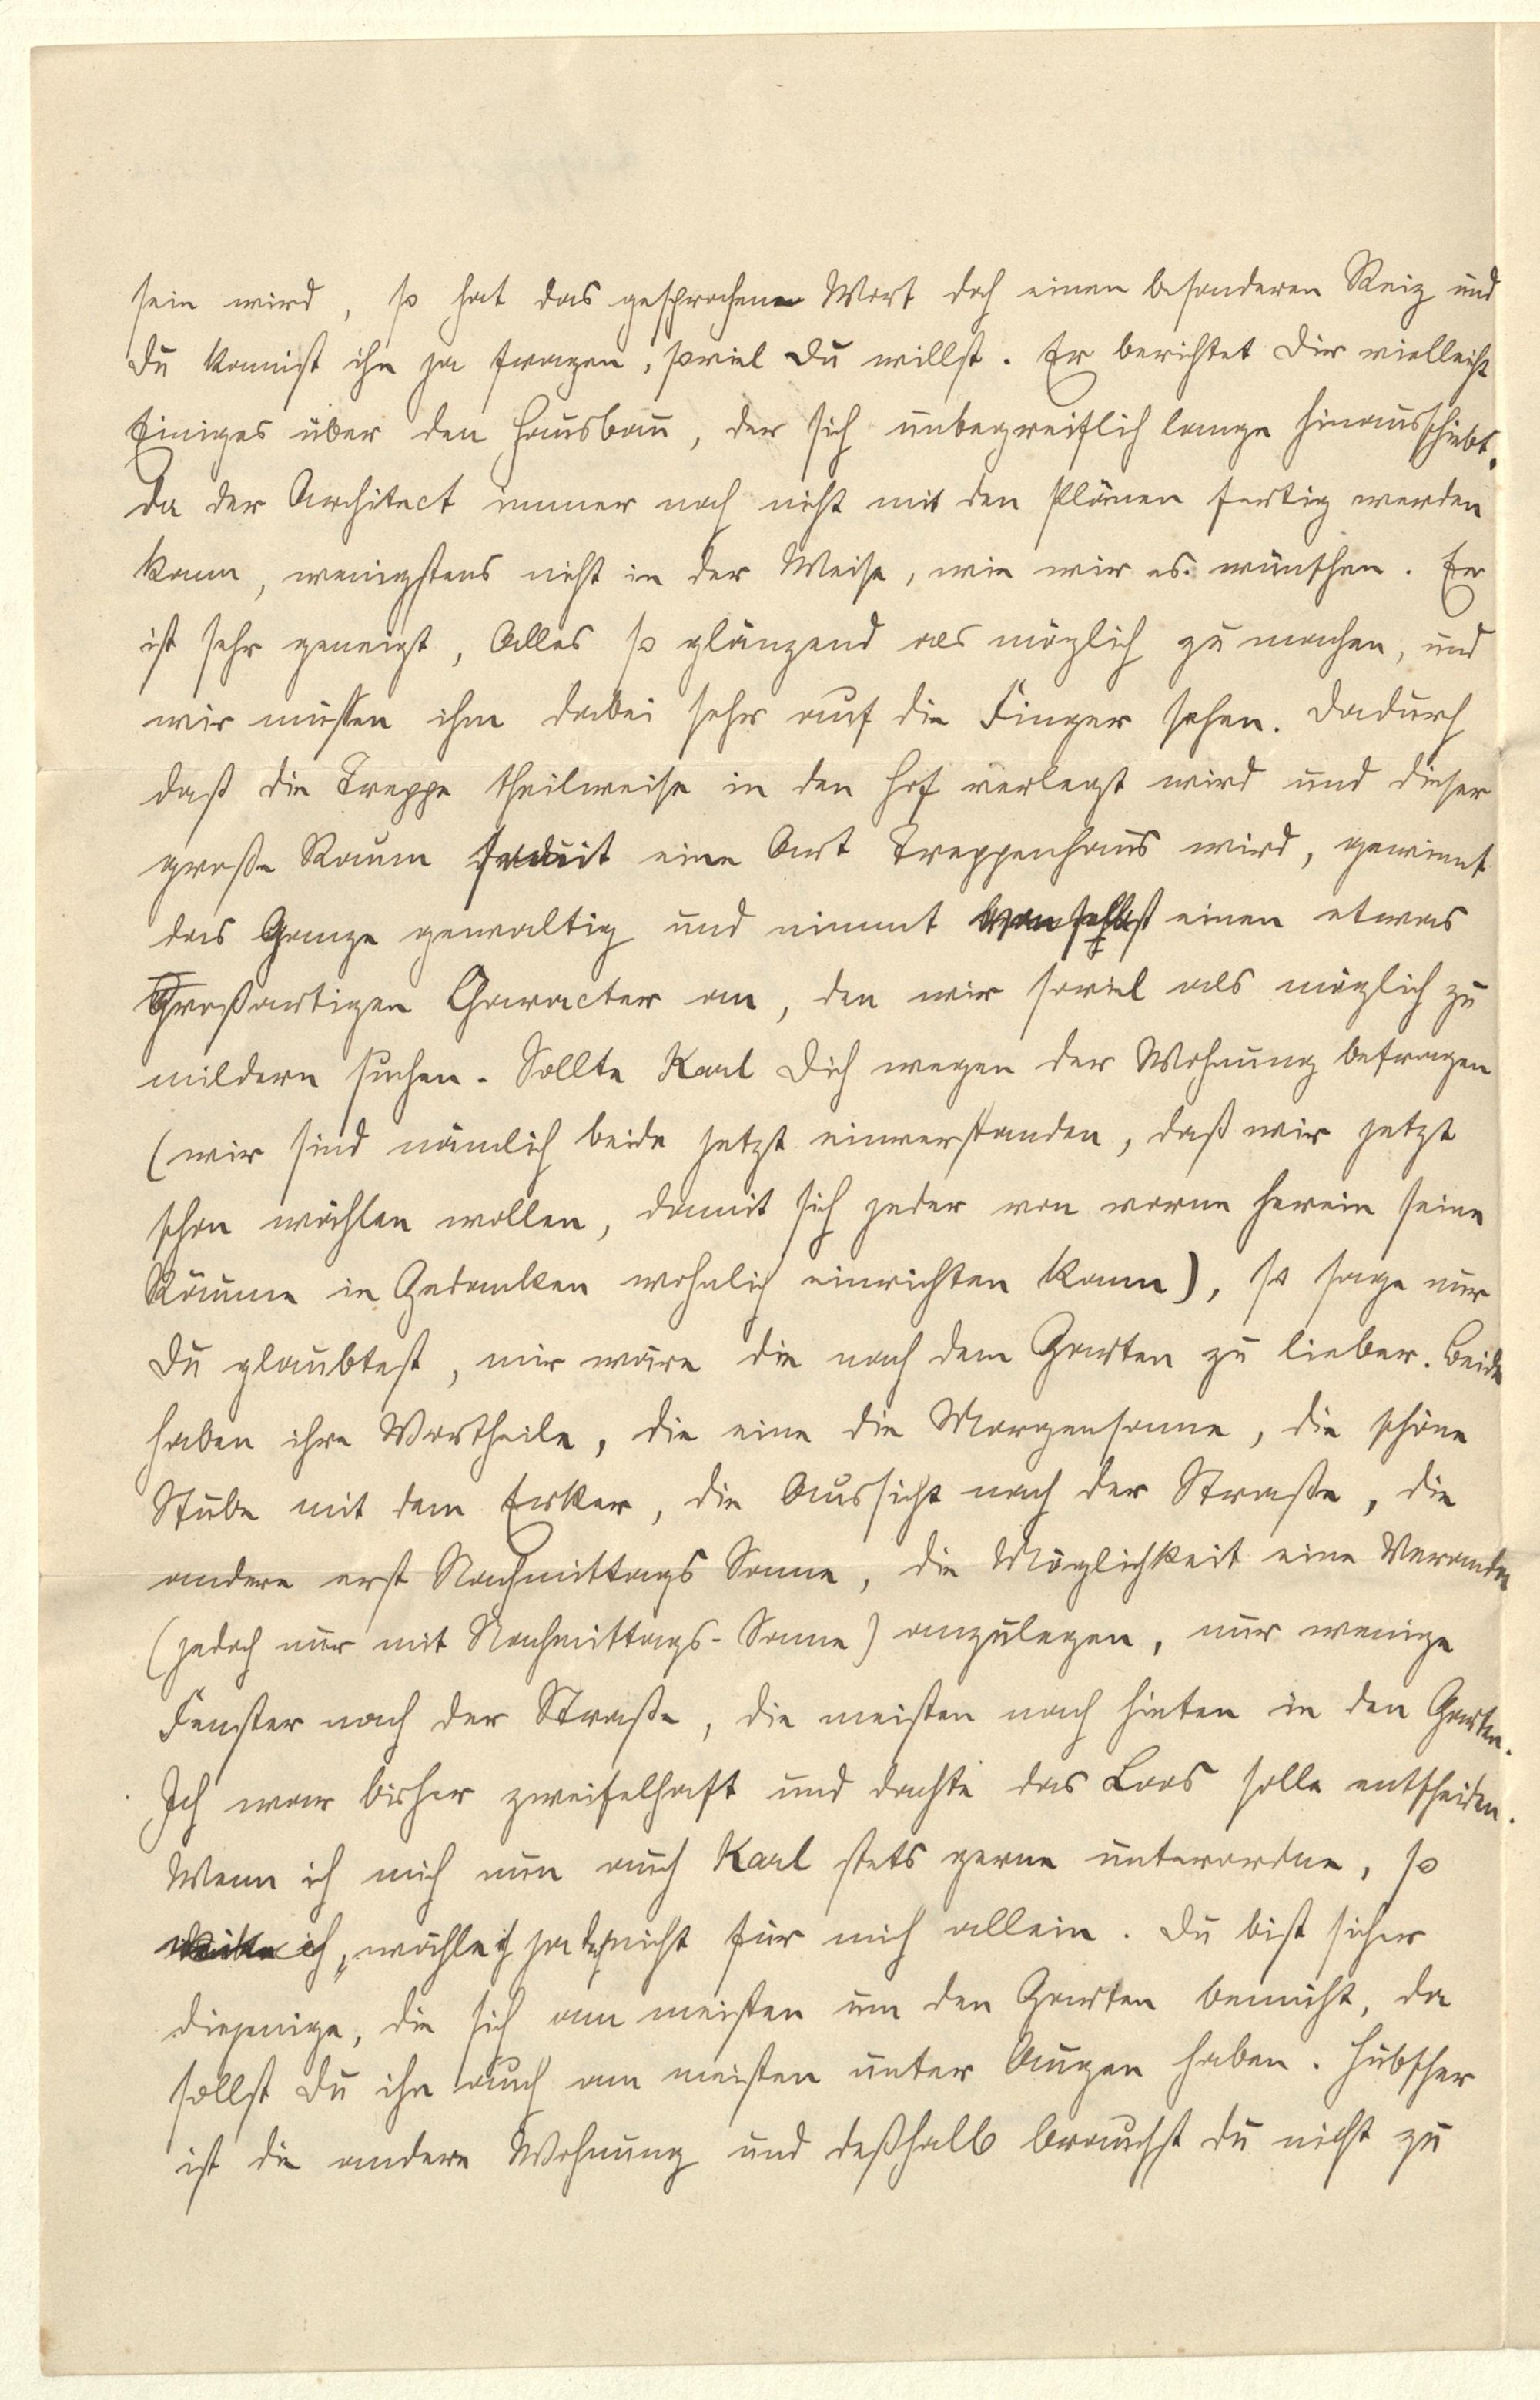 sein wird, so hat das gesprochene Wort doch einen besonderen Reiz und
Du kannst ihn ja fragen, soviel Du willst. Er berichtet Dir vielleicht
Einiges über den Hausbau, der sich unbegreiflich lange hinausschiebt.
Da der Architect immer noch nicht mit den Plänen fertig werden
kann, wenigstens nicht in der Weise, wie wir es wünschen. Er
ist sehr geneigt, Alles so glänzend als möglich zu machen, und
wir müssen ihm dabei sehr auf die Finger sehen. Dadurch
daß die Treppe theilweise in den Hof verlegt wird und dieser
große Raum somit eine Art Treppenhaus wird, gewinnt
das Ganze gewaltig und nimmt von selbst einen etwas
Großartigen Character an, den wir soviel als möglich zu
mildern suchen. Sollte Karl Dich wegen der Wohnung befragen
(wir sind nämlich beide jetzt einverstanden, daß wir jetzt
schon wählen wollen, damit sich jeder von vorne herein seine
Räume in Gedanken wohnlich einrichten kann), so sage nur
Du glaubtest, mir wäre die nach dem Garten zu lieber. Beide
haben ihre Vortheile, die eine die Morgensonne, die schöne
Stube mit dem Erker, die Aussicht nach der Straße, die
andere erst Nachmittags Sonne, die Möglichkeit eine Veranda
(jedoch nur mit Nachmittags-Sonne) anzulegen, nur wenige
Fenster nach der Straße, die meisten nach hinten in den Garten.
Ich war bisher zweifelhaft und dachte das Loos solle entscheiden.
Wenn ich mich nun auch Karl stets gerne unterordne, so
wähle ich ja doch nicht für mich allein. Du bist sicher
diejenige, die sich am meisten um den Garten bemüht, da
sollst Du ihn auch am meisten unter Augen haben. Hübscher
ist die andere Wohnung und deßhalb brauchst Du nicht zu